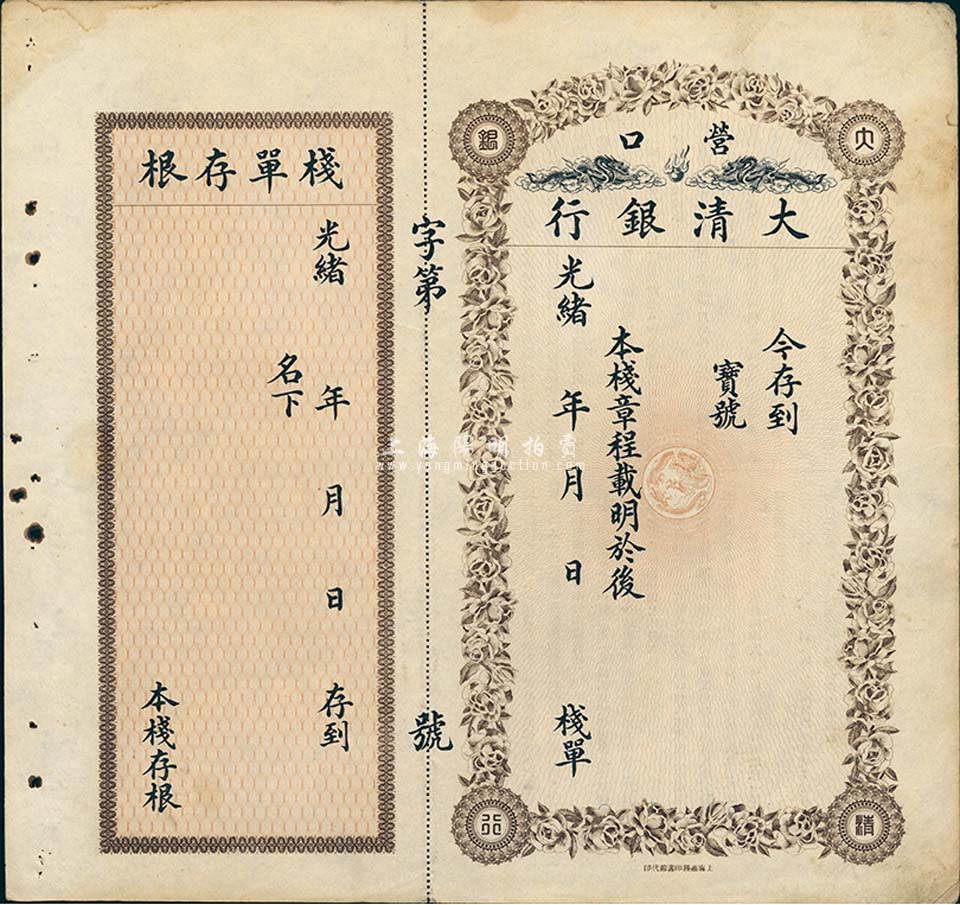 大
清
銀
行
營口
大清銀行
今存到
寶號
本棧章程載明於後
光緒 年 月 日 棧單
上海商務印書館代印
字第 號
棧單存根
光緒 年 月 日 存到
名下
本棧存根
上海陽明拍賣
www.yangmingauction.com